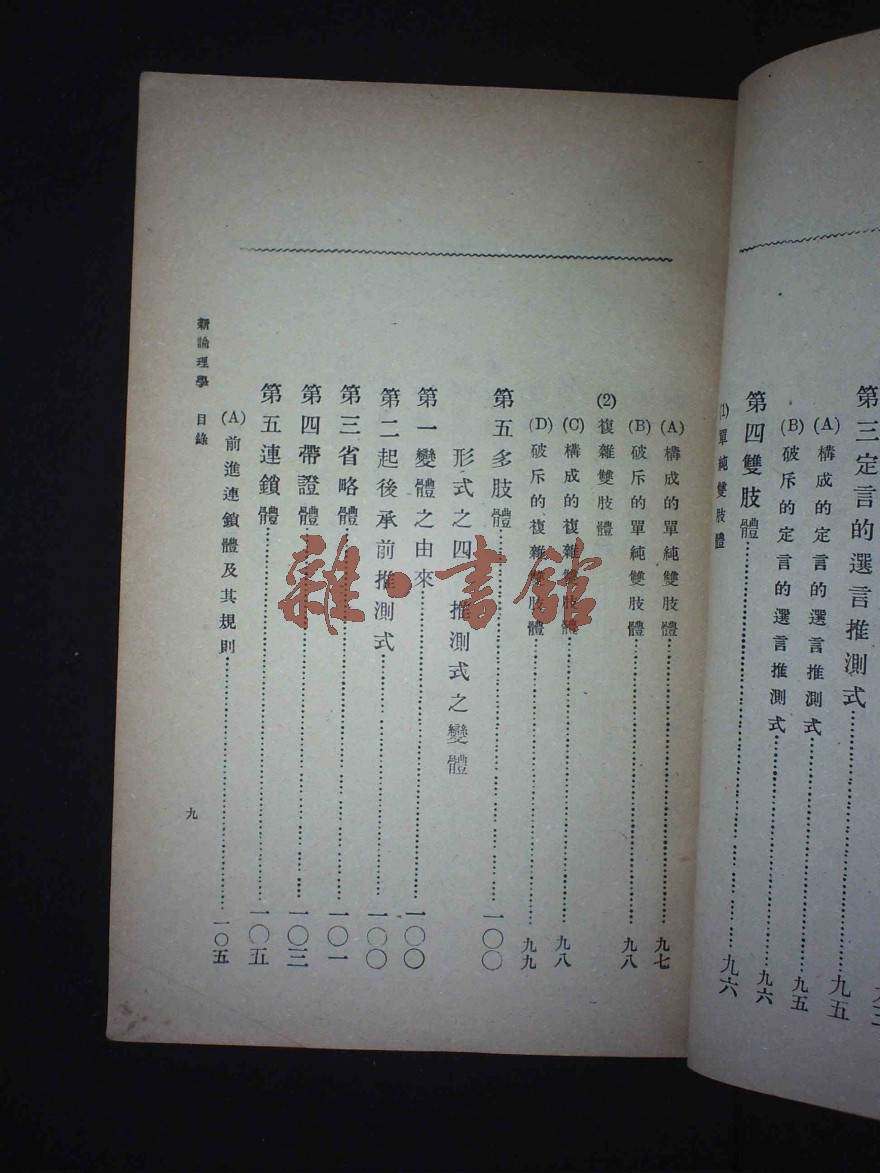 第三定言的選言推測式……九五
(A)構成的定言的選言推測式……九五
(B)破斥的定言的選言推測式……九六
第四雙肢體……九六
(1)單純雙肢體
(A)構成的單純雙肢體……九七
(B)破斥的單純雙肢體……九八
(2)複雜雙肢體
(C)構成的複雜雙肢體……九八
(D)破斥的複雜雙肢體……九九
第五多肢體……一〇〇
形式之四 推測式之變體
第一變體之由來……一〇〇
第二起後承前推測式……一〇〇
第三省略體……一〇一
第四帶證體……一〇三
第五連鎖體……一〇五
(A)前進連鎖體及其規則……一〇五
新論理學 目錄
九
雜·書館